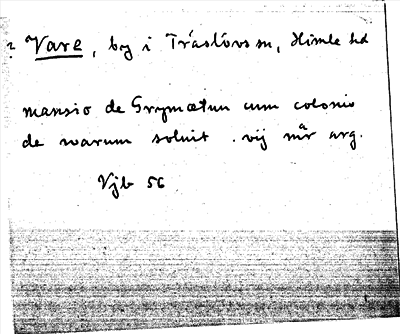 ? Vare, by i Träslövs sn, Himle hd
mansio de Grymætun cum colonio
de warum soluit . vij mār arg.
Vjb 56